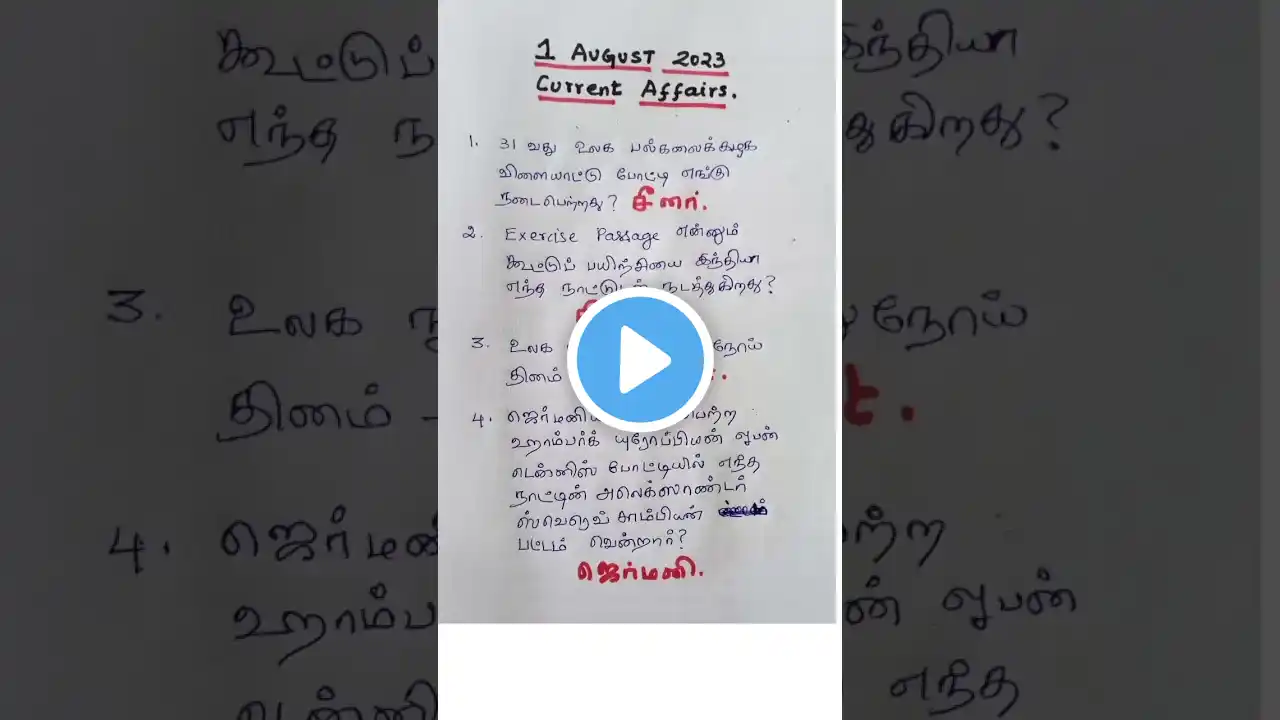 1 AUGUST 2023
Current Affairs.
1. 31 வது உலக பல்கலைக்கழக
விளையாட்டு போட்டி எங்கு
நடைபெற்றது? சீனா.
2. Exercise Passage என்னும்
கூட்டுப் பயிற்சியை இந்தியா
எந்த நடத்துகிறது?
3. உலக நோய்
தினம்
4.
ஹாம்பர்க் யுரோப்பியன் ஓபன்
டென்னிஸ் போட்டியில் எந்த
நாட்டின் அலெக்ஸாண்டர்
ஸ்வெரெவ் சாம்பியன்
பட்டம் வென்றார்?
ஜெர்மனி.